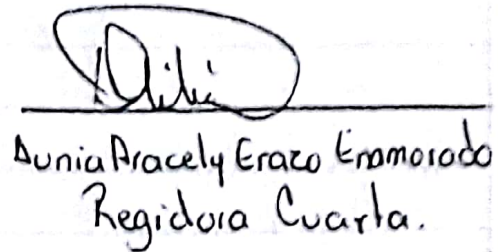 Dunia Aracely Erazo Enamorado
Regidora Cuarta.